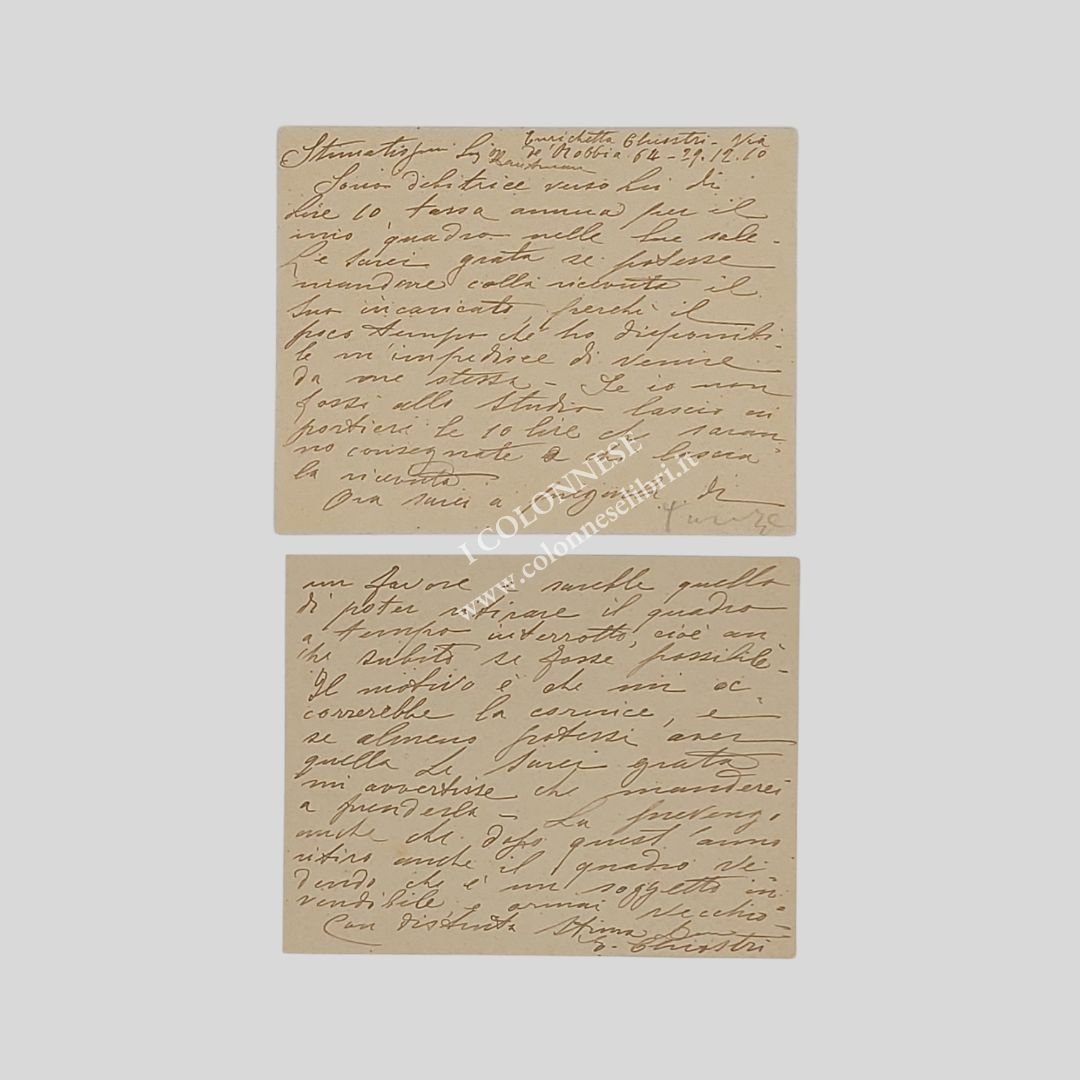 Enrichetta Chiostri - Via
Stimatissimo Sig. de' Robbia 64 - 29.12.10
Sono debitrice verso Lei di
Lire 10 tassa annua per il
mio quadro nelle Sue sale -
Le sarei grata se potesse
mandare colla ricevuta il
Suo incaricato, perchè il
poco tempo che ho disponibi-
le m'impedisce di venire
da me stessa - Se io non
fossi allo studio lascio ai
portieri le 10 lire che saran-
no consegnate a chi lascia
la ricevuta
Ora sarei a pregarla di
Firenze
un favore e sarebbe quello
di poter ritirare il quadro
a tempo interrotto, cioè an
che subito se fosse possibile -
Il motivo è che mi oc-
correrebbe la cornice, e
se almeno potessi aver
quella Le sarei grata
mi avvertisse che manderei
a prenderla - La prevengo
anche che dopo quest'anno
ritiro anche il quadro ve
dendo che è un soggetto in-
vendibile e ormai vecchio -
Con distinta stima
E. Chiostri
I COLONNESE
www.colonneselibri.it